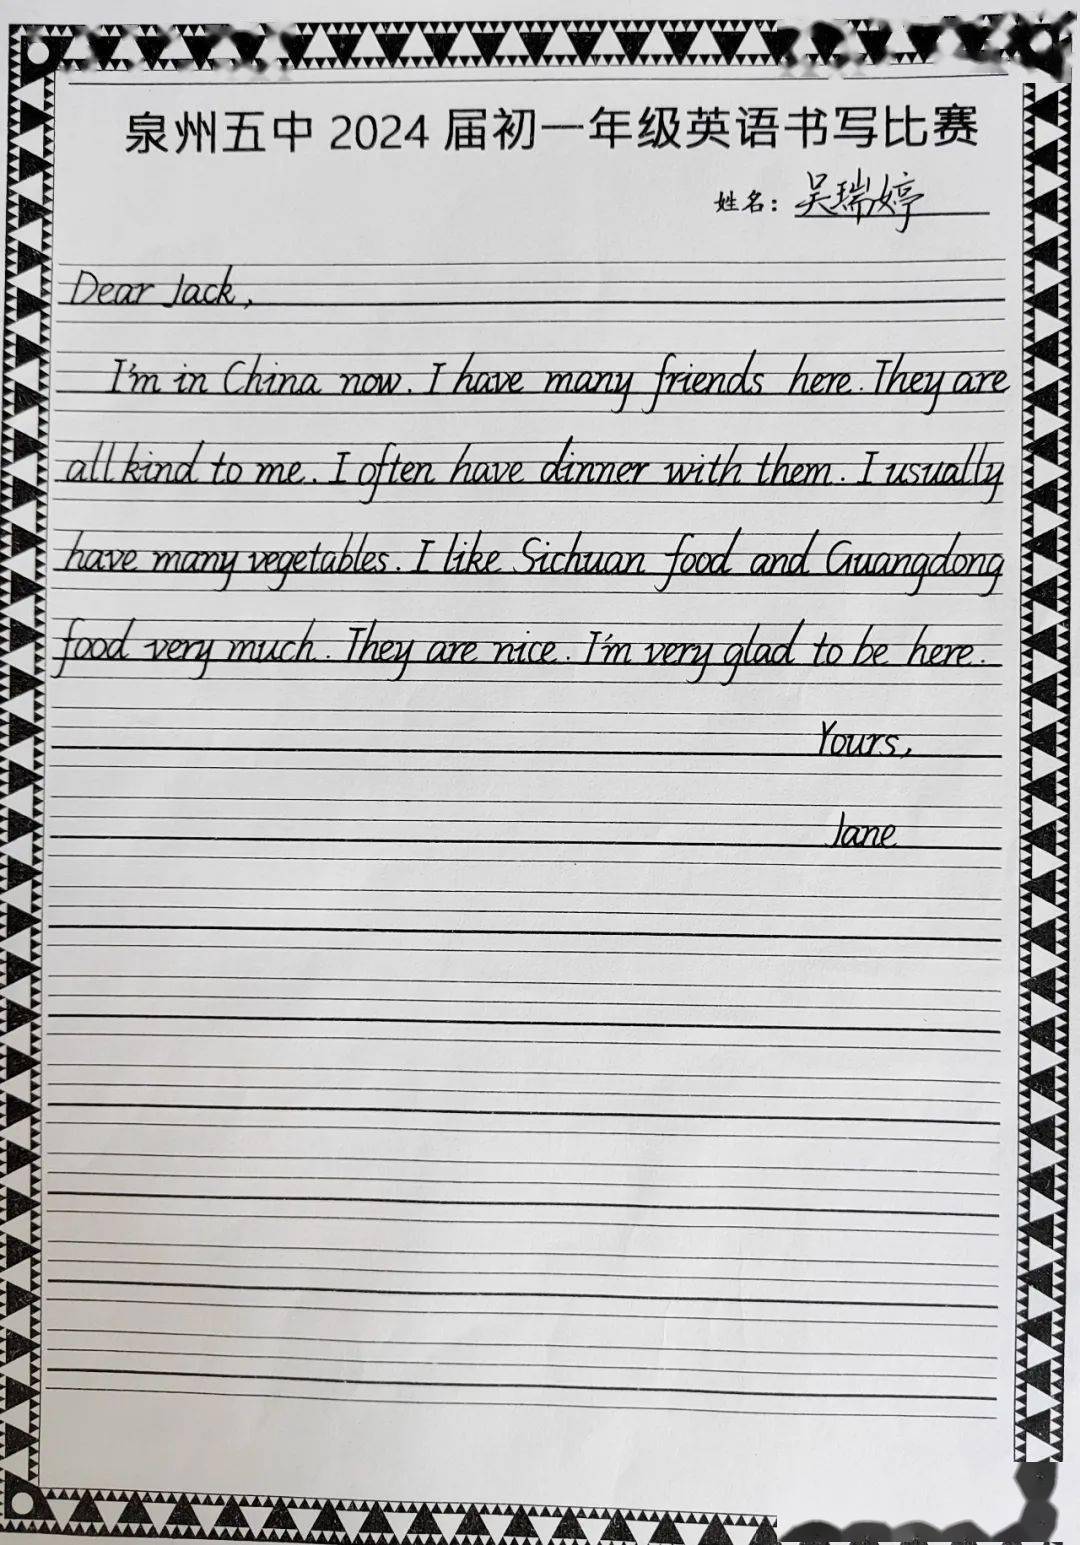 泉州五中 2024 届初一年级英语书写比赛
姓名：吴瑞婷
Dear Jack,
I'm in China now. I have many friends here. They are
all kind to me. I often have dinner with them. I usually
have many vegetables. I like Sichuan food and Guangdong
food very much. They are nice. I'm very glad to be here.
Yours,
Jane